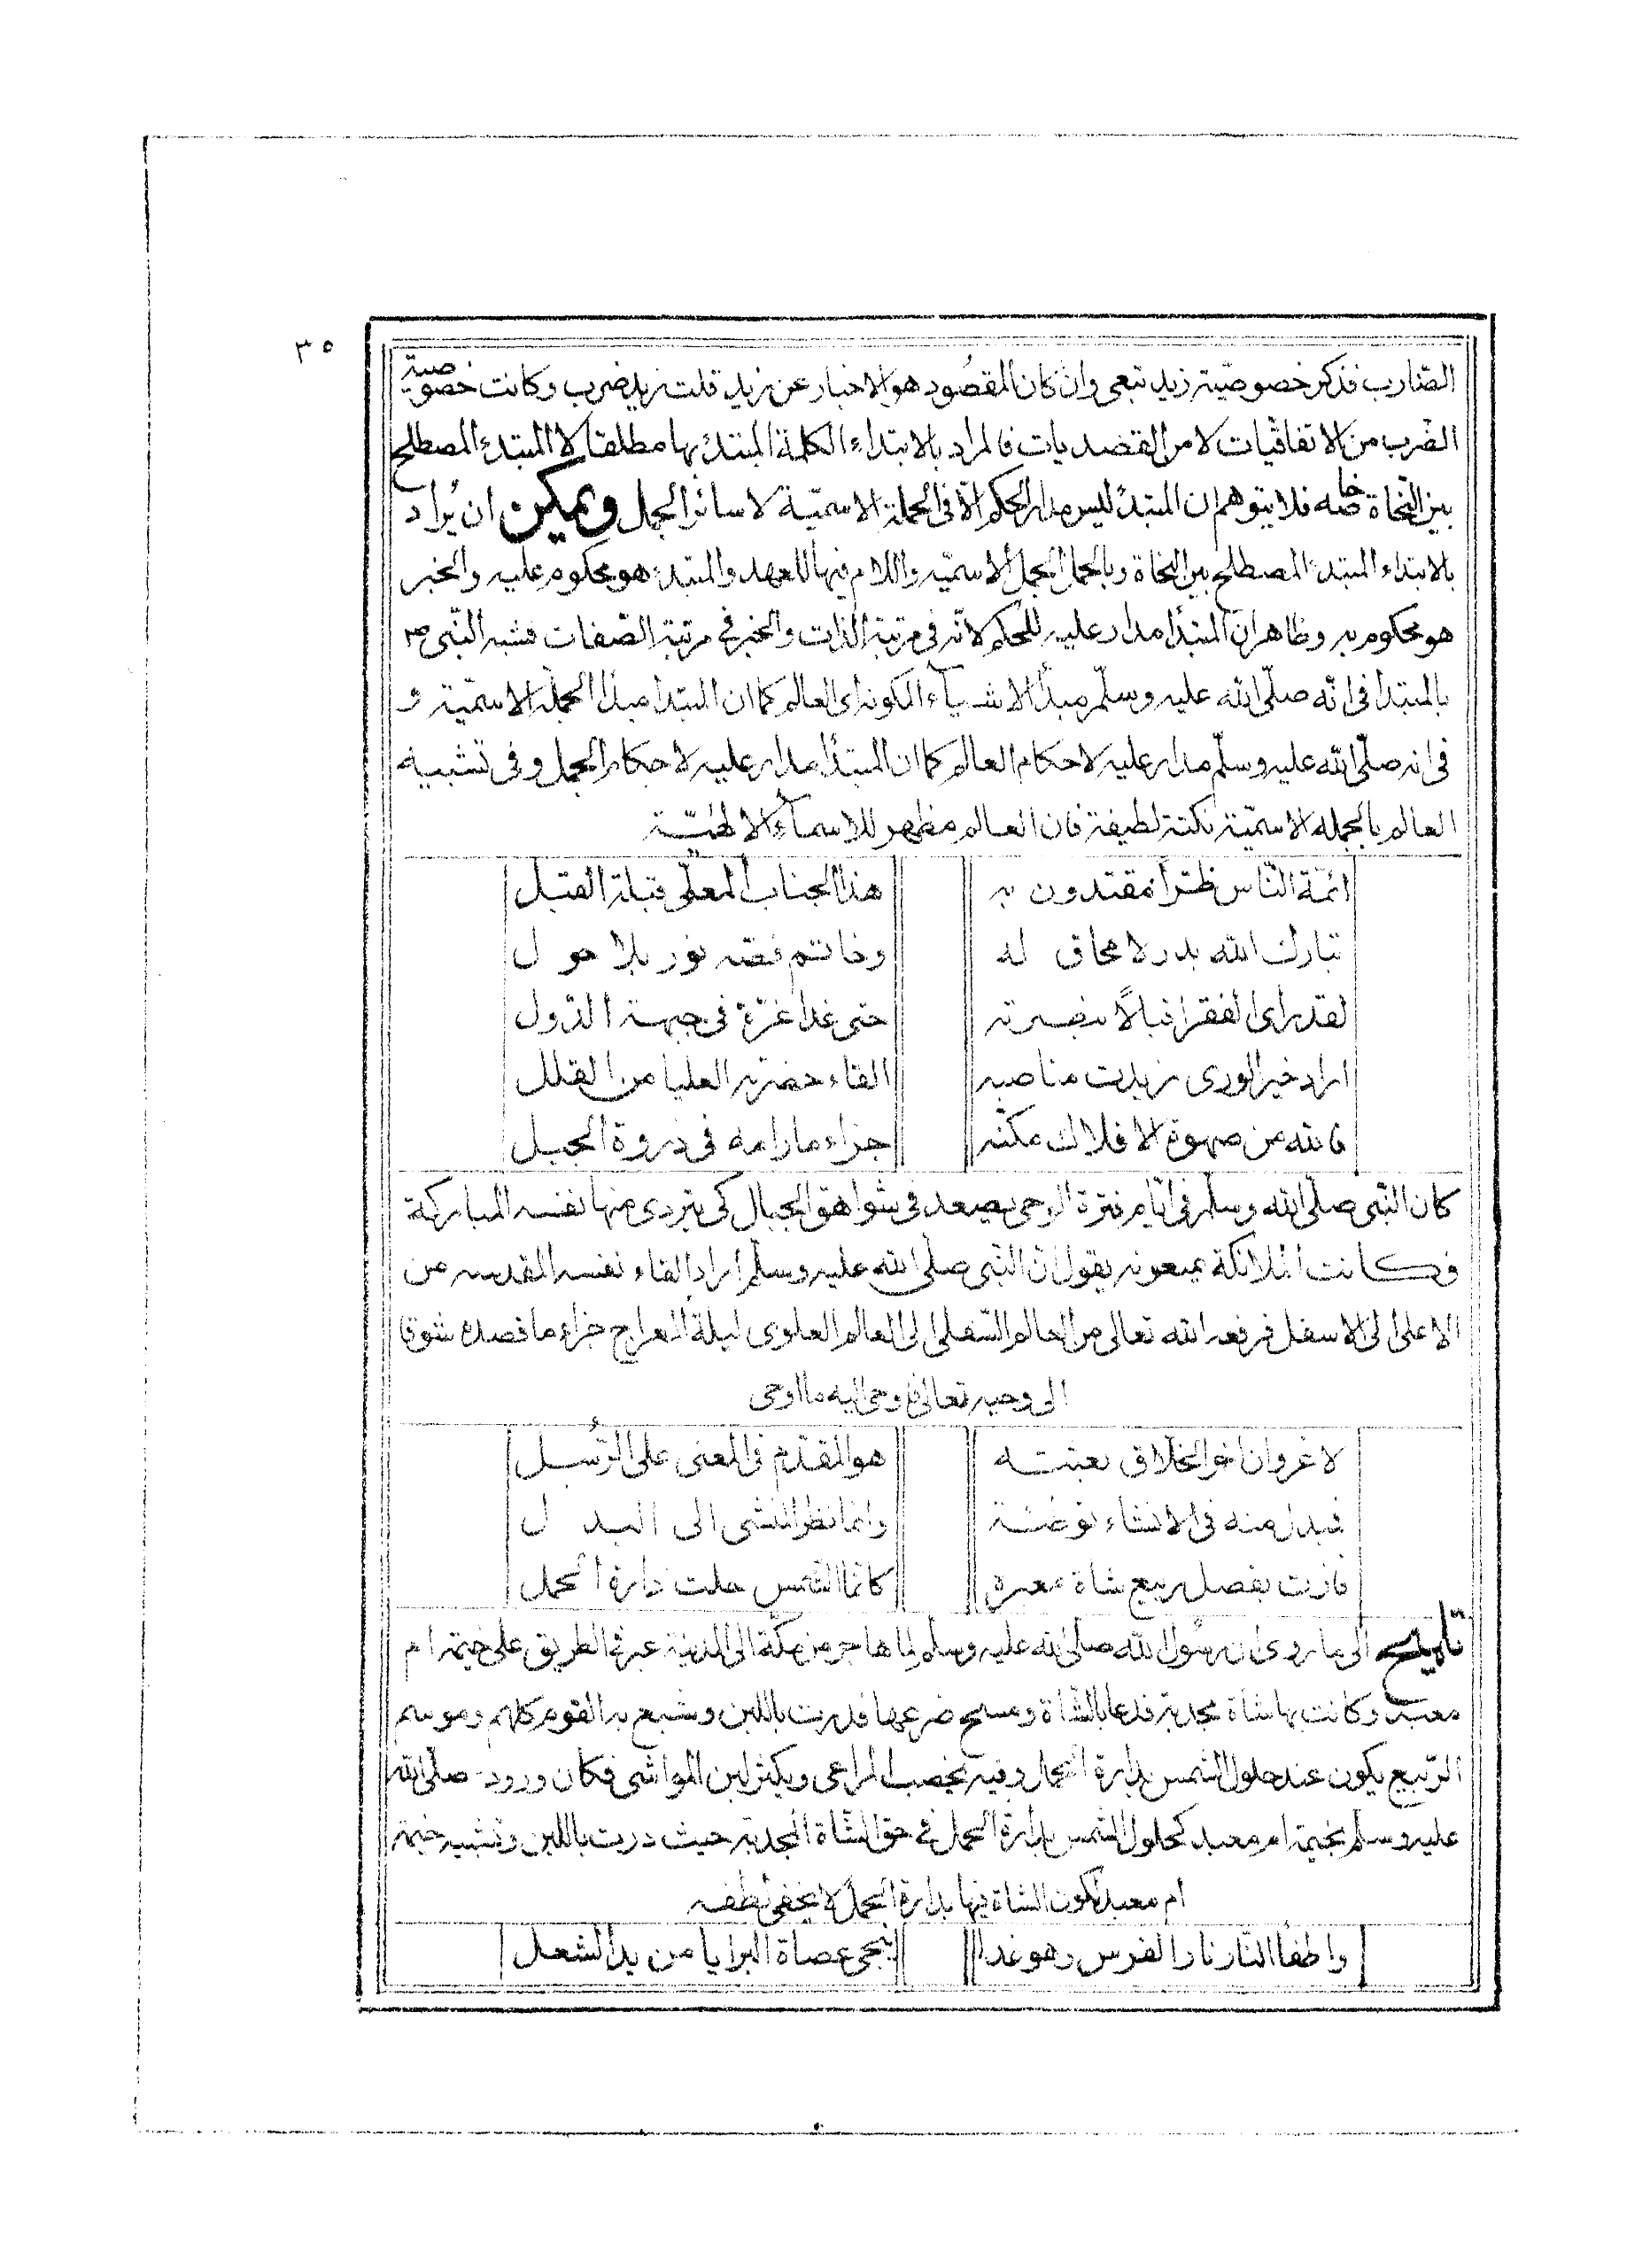 ٣٥
الضارب فذكر خصوصّية زيد تبعى وان كان المقصُود هو الاخبار عن زيد قلت زيد ضرب وكانت خصوصية
الضّرب من الاتفاقيات لا من القصديات فالمراد بالابتداء الكلمة المبتدء بها مطلقا لا المبتدء المصطلح
بين النّحاة خاصه فلا يتوهم ان المبتدأ ليس مدار الحكم الّا فى الجملة الاسمّية لا سائر الجمل ويمكن ان يُراد
بالابتداء المبتدء المصطلح بين النحاة وبالجمل الجمل الاسمّيه واللام فيها للعهد والمبتدء هو محكوم عليه والخبر
هو محكوم به وظاهر انّ المبتدأ مدار عليه للحكم لانّه فى مرتبة الذات والخبر فى مرتبة الصّفات فشبه النّبى ص
بالمبتدا فى انّه صلّى الله عليه وسلّم مبدأ الاشيآء الكونه اى العالم كما ان المبتدا مبدا الجملة الاسمّية و
فى انه صلّى الله عليه وسلّم مدار عليه لاحكام العالم كما ان المبتدأ مدار عليه لاحكام الجمل وفى تشبيه
العالم بالجمله الاسمّية نكتة لطيفة فان العالم مظهر للاسمآء الالهيّة
ائمّة النّاس طرّاً مقتدون به هذا الجناب المعلّى قبلة القبل
تبارك الله بدر لا محاق له وخاتم فصّه نور بلا حول
لقد راى الفقر اقبالًا ببصيرته حتى غدا غرّة فى جبهة الدّول
اراد خير الورى زيدت مناصبه القاء حضرته العليا من القلل
فالله من صهوة الافلاك مكنّه جزاء ما رامه فى ذروة الجبل
كان النّبى صلّى الله وسلّم فى ايّام فترة الوحى يصعد فى شواهق الجبال كى يتردى منها نفسه المباركة
فكانت الملائكة يمنعونه يقول انّ النّبى صلّى الله عليه وسلّم اراد القاء نفسه المقدسه من
الاعلى الى الاسفل فرفعه الله تعالى من العالم السّفلى الى العالم العلوى ليلة المعراج جزاء ما قصده شوقا
الى وحيه تعالى فاوحى اليه ما اوحى
لا غروان اخّر الخلّاق بعثته هو المقدّم فى المعنى على الرُّسل
فبدل منه فى الانشاء توطئة وانما نظر المنشى الى البدل
فازت بفصل ربيع شاة معبده كانّما الشّمس حلت دارة الحمل
تلميح الى ما روى ان رسُول الله صلى الله عليه وسلم لما هاجر من مكّة الى المدينة عبر فى الطريق على خيمة ام
معبد وكانت بها شاة مجدبة فدعا بالشّاة ومسح ضرعها فدرت باللبن وشبع به القوم كلهم وموسم
الرّبيع يكون عند حلول الشمس بدارة الحمل وفيه يخصب المراعى ويكثر لبن المواشى فكان وروده صلّى الله
عليه وسلّم بخيمة ام معبد كحلول الشمس بدارة الحمل فى حق الشّاة المجدبة حيث درت باللبن وتشبيه خيمة
ام معبد لكون الشاة فيها بدارة الحمل لا يخفى لطفه
واطفأ النّار نار الفرس وهو غدا ينجى عصاة البرايا من يد الشعل